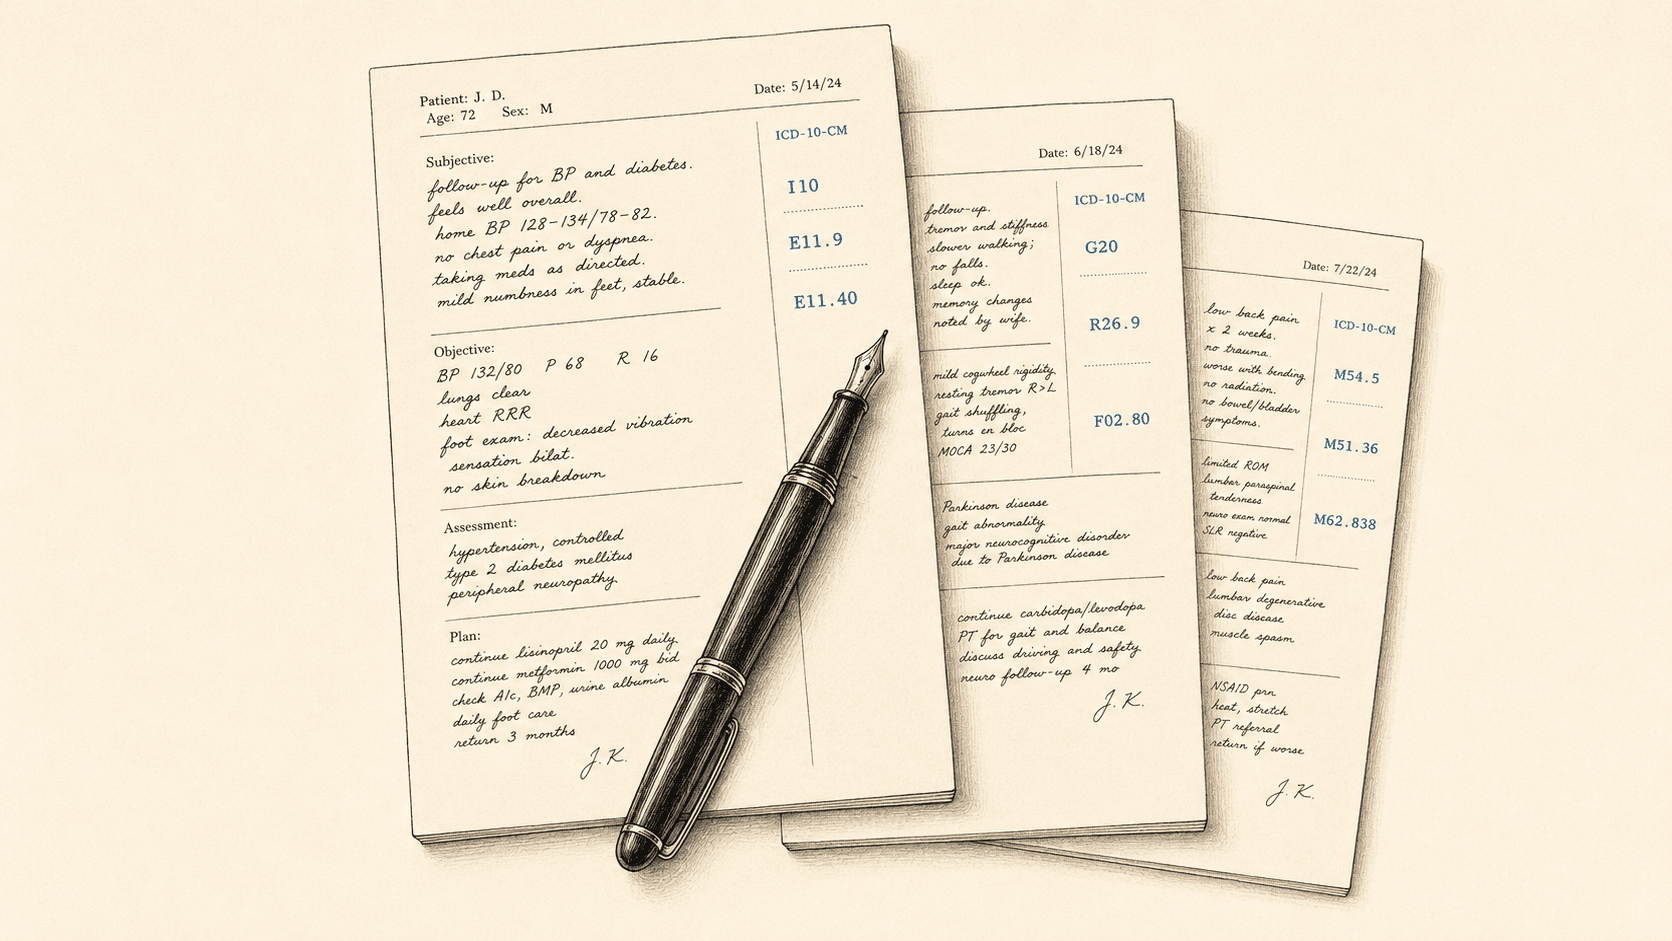 Patient: J. D.
Age: 72 Sex: M
Date: 5/14/24
Subjective:
follow-up for BP and diabetes.
feels well overall.
home BP 128-134/78-82.
no chest pain or dyspnea.
taking meds as directed.
mild numbness in feet, stable.
Objective:
BP 132/80 P 68 R 16
lungs clear
heart RRR
foot exam: decreased vibration
sensation bilat.
no skin breakdown
Assessment:
hypertension, controlled
type 2 diabetes mellitus
peripheral neuropathy
Plan:
continue lisinopril 20 mg daily
continue metformin 1000 mg bid
check A1c, BMP, urine albumin
daily foot care
return 3 months
J. K.
ICD-10-CM
I10
E11.9
E11.40
Date: 6/18/24
follow-up.
tremor and stiffness
slower walking;
no falls.
sleep ok.
memory changes
noted by wife.
mild cogwheel rigidity
resting tremor R>L
gait shuffling,
turns en bloc
MOCA 23/30
ICD-10-CM
G20
R26.9
F02.80
Parkinson disease
gait abnormality
major neurocognitive disorder
due to Parkinson disease
continue carbidopa/levodopa
PT for gait and balance
discuss driving and safety
neuro follow-up 4 mo
J. K.
Date: 7/22/24
low back pain
x 2 weeks.
no trauma.
worse with bending
no radiation.
no bowel/bladder
symptoms.
limited ROM
lumbar paraspinal
tenderness
neuro exam normal
SLR negative
ICD-10-CM
M54.5
M51.36
M62.838
low back pain
lumbar degenerative
disc disease
muscle spasm
NSAID prn
heat, stretch
PT referral
return if worse
J. K.